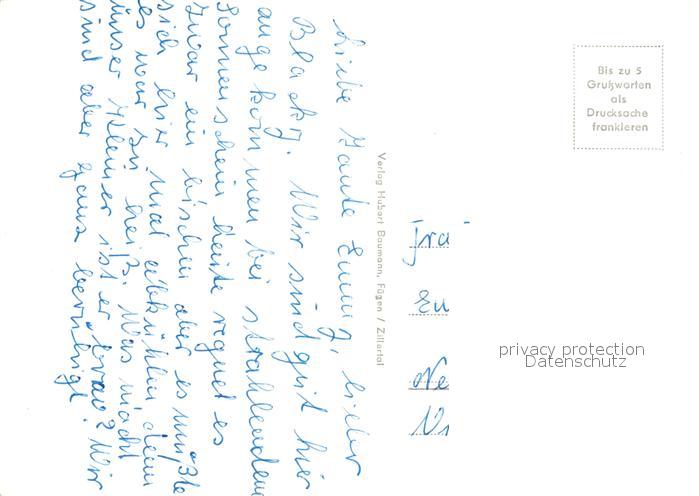 Liebe Tante Emmy, lieber
Blacky. Wir sind gut hier
angekommen bei strahlendem
Sonnenschein heute regnet es
zwar ein bischen aber es mußte
sich hier mal abkühlen denn
es war zu heiß. Was macht
unser Kleiner ist er brav? Wir
sind aber ganz beruhigt.
Verlag Hubert Baumann, Fügen / Zillertal
Bis zu 5
Grußworten
als
Drucksache
frankieren
Frau
Em
Ne
privacy protection
Datenschutz